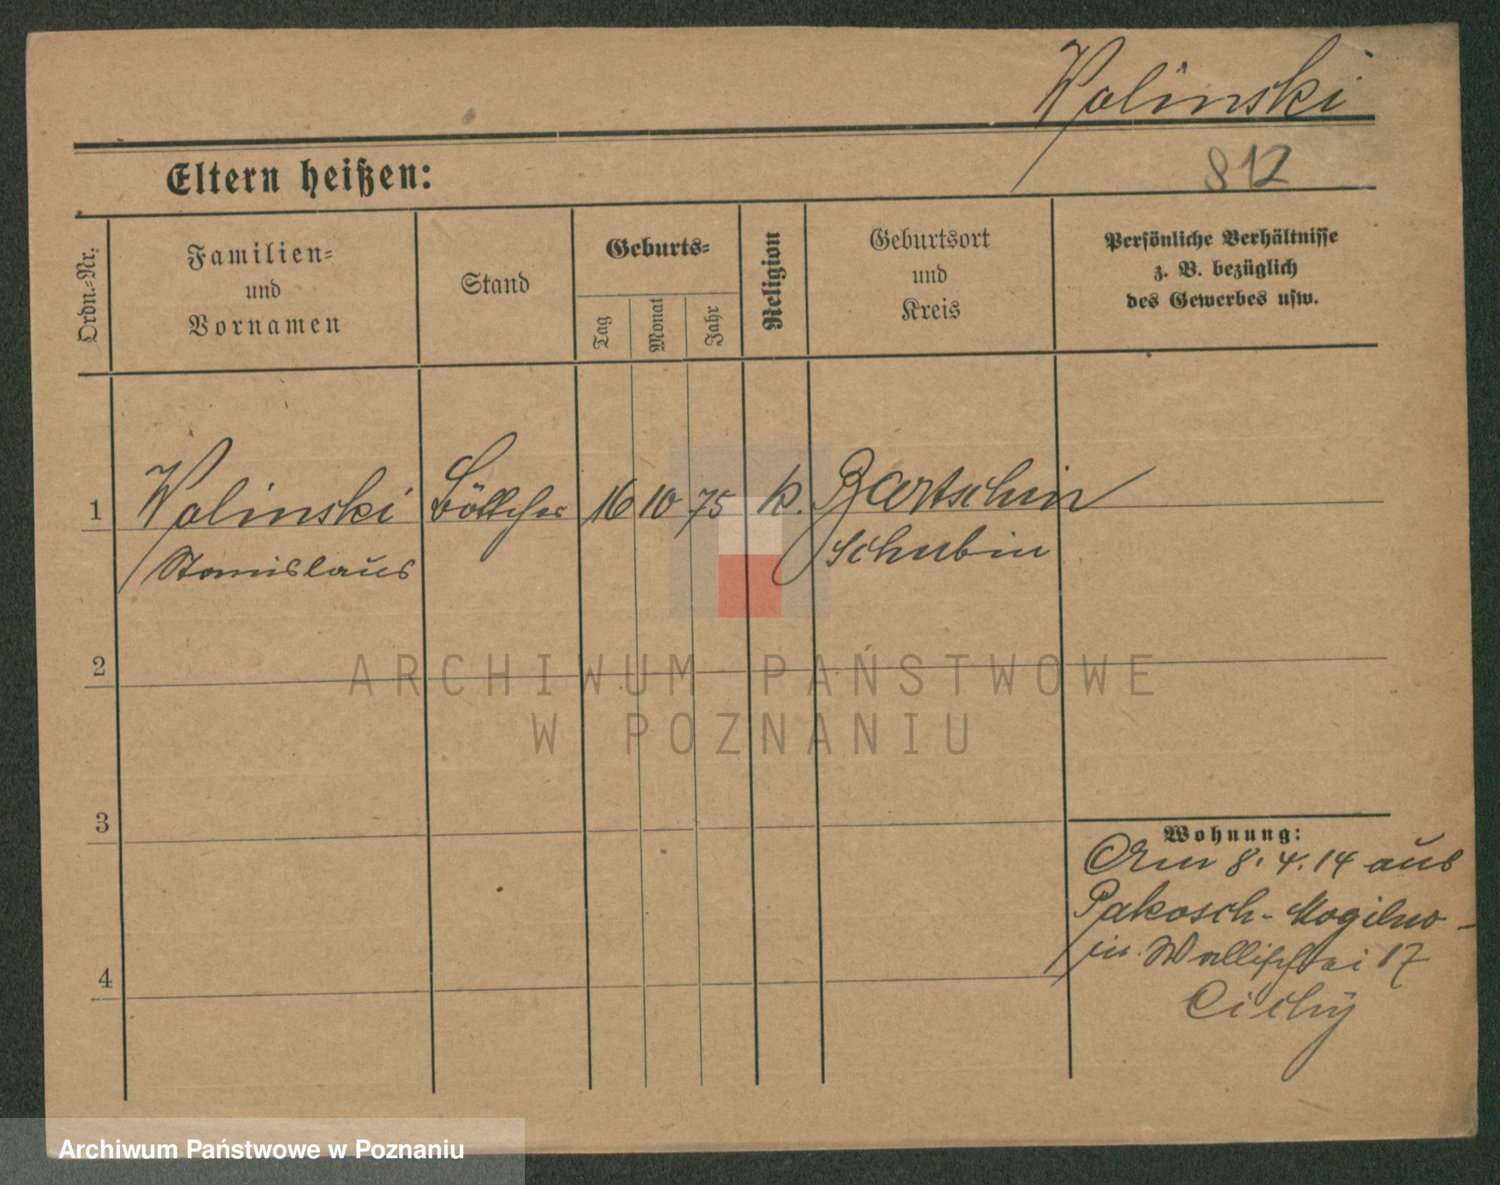 Wolinski
812
Eltern heißen:
Ordn.-Nr.
Familien-
und
Vornamen
Stand
Geburts-
Tag
Monat
Jahr
Religion
Geburtsort
und
Kreis
Persönliche Verhältnisse
z. B. bezüglich
des Gewerbes usw.
1 Wolinski Böttcher 16 10 75 k. Bartschin
Stanislaus Schubin
2
3
4
Wohnung:
Am 8.4.14 aus
Pakosch-Mogilno-
in Wallischei 17
Cichy
ARCHIWUM PAŃSTWOWE
W POZNANIU
Archiwum Państwowe w Poznaniu